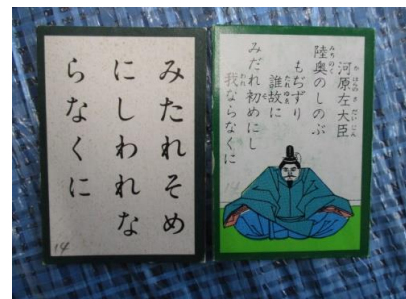 河原左大臣
陸奥のしのぶ
もぢずり
誰故に
みだれ初めにし
我ならなくに
みたれそめ
にしわれな
らなくに
14